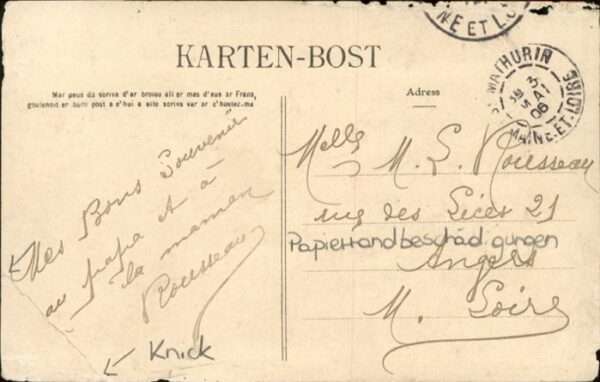 NE ET LO
KARTEN-BOST
Mar peus da scrivs d'ar broiou all er mes d'eus ar Frans,
goulennet er buro post a c'hui a elle scriva var ar c'hostez-ma
Adress
MATHURIN
3
MAI
06
MAINE-ET-LOIRE
Mes Bons Souvenir
au papa et à
la maman
Rousseau
Melle M. L. Rousseau
rue des Lices 21
Papierrandbeschädigungen
Angers
M. Loire
Knick